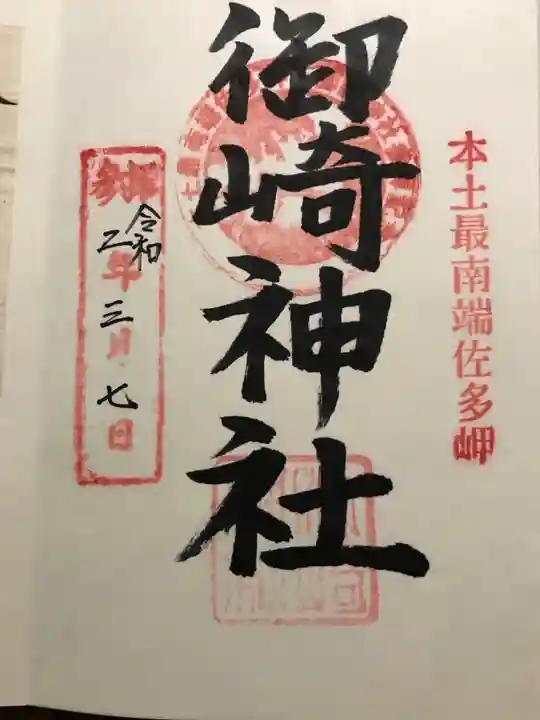 本土最南端佐多岬
御崎神社
参拝
令和二年三月七日